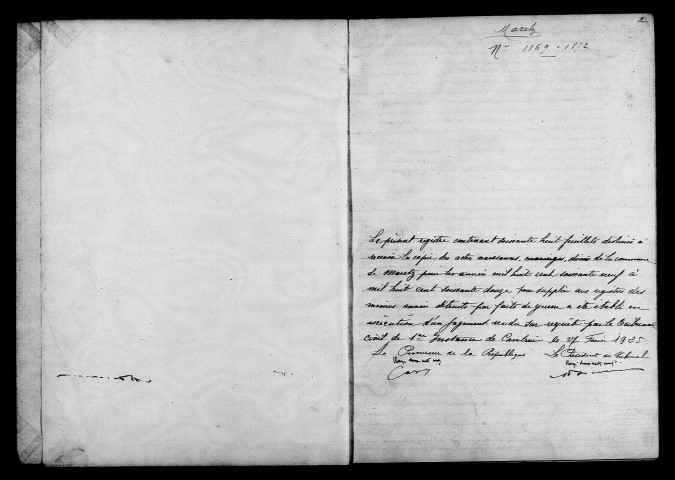 Maretz
Nº 1869-1872
Le présent registre contenant soixante huit feuillets destinés à
recevoir la copie des actes naissances, mariages, décès de la commune
de Maretz pour les années mil huit cent soixante neuf à
mil huit cent soixante douze pour suppléer aux registres des
mêmes années détruits par faits de guerre a été établi en
exécution d'un jugement rendu sur requête par le tribunal
civil de 1ère Instance de Cambrai le 27 Juin 1925
Le Procureur de la République Le Président du Tribunal